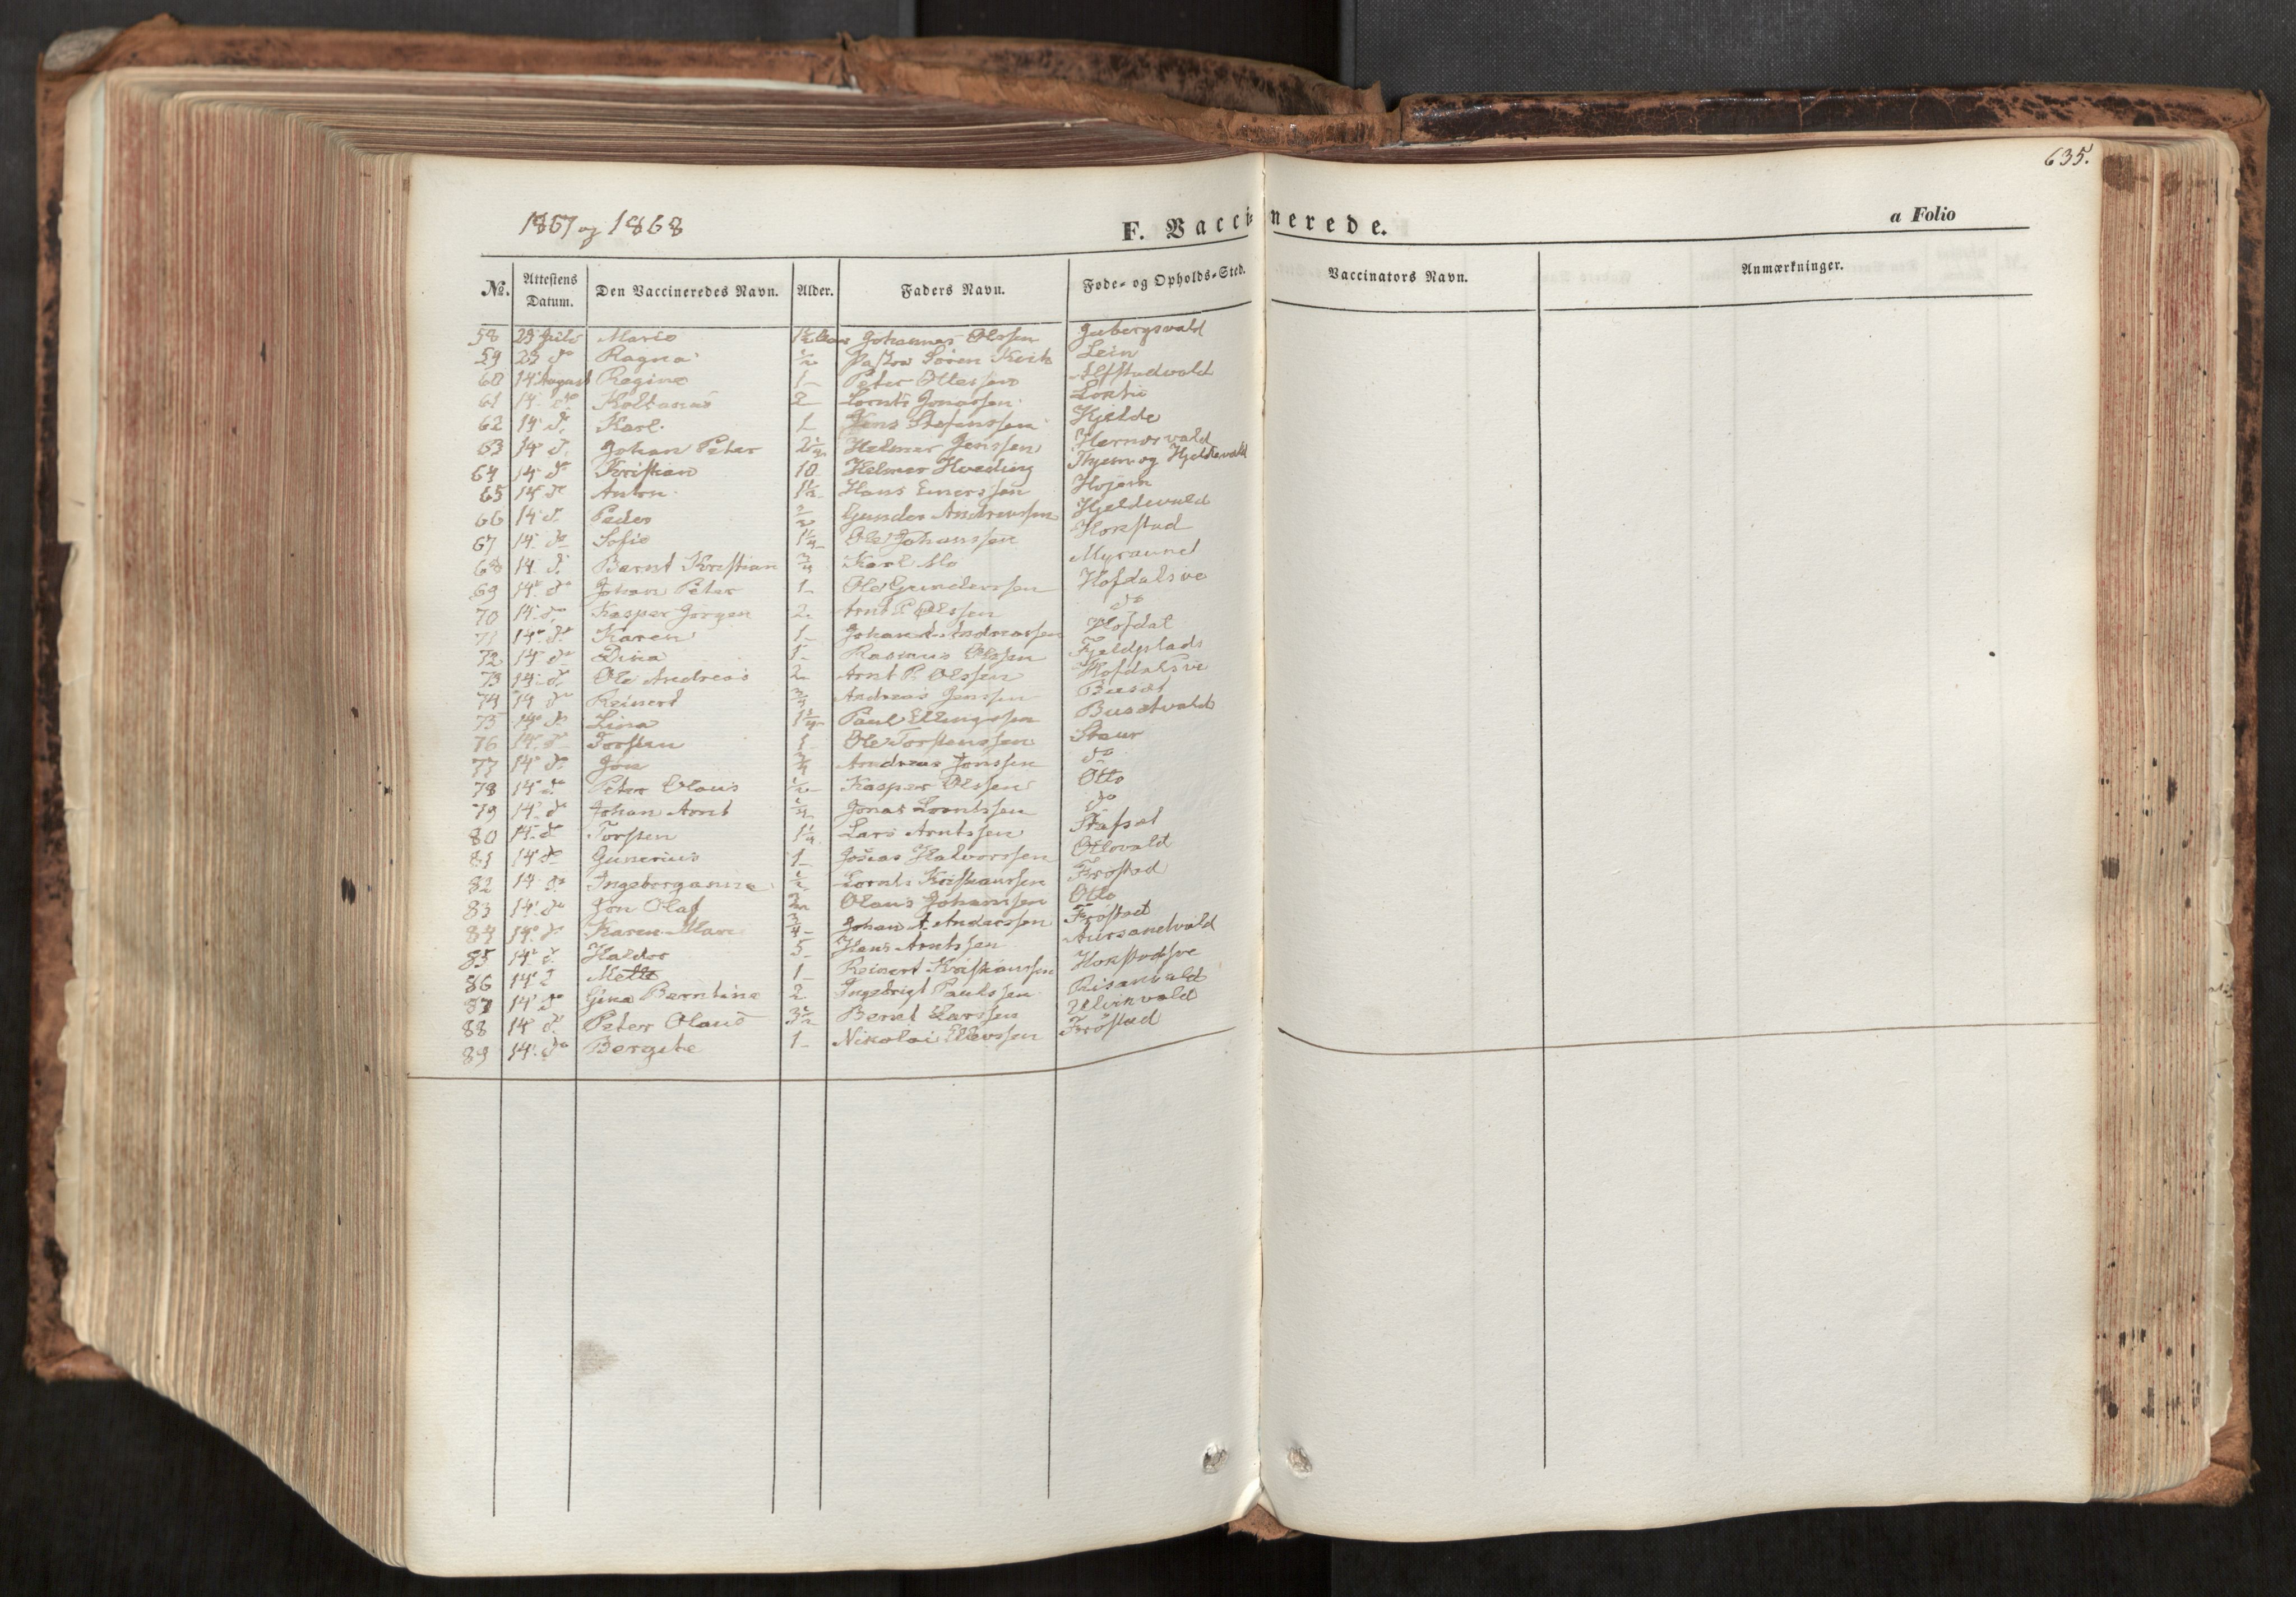 635.
1867 og 1868
F. Vaccinerede.
a Folio
No. Attestens Datum. Den Vaccineredes Navn. Alder. Faders Navn. Føde- og Opholds-Sted. Vaccinators Navn. Anmærkninger.
58 23 Juli Marie 1½ Johannes Olssen
59 23 do Ragna ½ Pastor Sören Lein
60 14 August Regine 1 Peter Ottessen Alfstadvald
61 14 do 2 Lornts Jonassen
62 14 d. Karl 1 Jens Stefanssen Kjelde
63 14 d. Johan Peter Helmer Jenssen Hernesvald
64 14 do Kristian 10 Helmer Hveding og Hjeldevald
65 14 do Anton 1½ Hans Einerssen
66 14 d. Peder Gunder Andreassen Hjeldevald
67 14 do Sofie 1¼ Ole Johanssen Hokstad
68 14 d. Bernt Kristian ¾ Karl Mo Myraunet
69 14 do Johan Peter 1 Ole Gunderssen Hofdalsve
70 14 do Kasper Jörgen 2 Arnt P. Olssen do
71 14 do Karen 1 Johan A. Andreassen Hofdal
72 14 do Dina 1 Rasmus Olssen Fjeldplads
73 14 d. Ole Andreas 2 Arnt P. Olssen Hofdalsve
74 14 do Reinert ¾ Andreas Jenssen Buset
75 14 do Lina 1¼ Paul Ellingssen Busetvald
76 14 do Torsten 1 Ole Torstenssen Staur
77 14 do Jon ¾ Andreas Jonssen do
78 14 do Peter Olaus ½ Kasper Olssen Otto
79 14 d Johan Arnt Jonas Lorntssen do
80 14 d Torsten 1¼ Lars Arntssen Stafset
81 14 do Gunerius 1 Josias Halvorssen Ottovald
82 14 do Ingeborganna ½ Lornts Kristianssen Fröstad
83 14 do Jon Olaf Olaus Johanssen Otto
84 14 do Karen Marie ¾ Johan A. Anderssen Fröstad
85 14 d. Haldor 5 Hans Arntssen Aursandvald
86 14 d Mette 1 Reinert Kristianssen Hokstadsve
87 14 do Gina Berntine 2 Ingebrigt Paulssen Risanvald
88 14 d. Peter Olaus 3½ Bernt Larssen Ulvikvald
89 14 do Bergite 1 Nikolai Ellevssen Fröstad